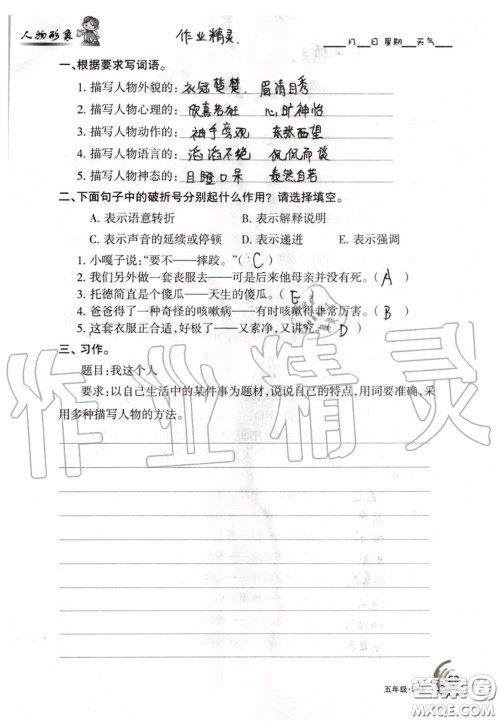 人物形象
作业精灵.
月 日 星期 天气
一、根据要求写词语。
1. 描写人物外貌的：衣冠楚楚. 眉清目秀
2. 描写人物心理的：欣喜若狂 心旷神怡
3. 描写人物动作的：袖手旁观 东张西望
4. 描写人物语言的：滔滔不绝 侃侃而谈
5. 描写人物神态的：目瞪口呆 泰然自若
二、下面句子中的破折号分别起什么作用？请选择填空。
A. 表示语意转折 B. 表示解释说明
C. 表示声音的延续或停顿 D. 表示递进 E. 表示强调
1. 小嘎子说：“要不——摔跤。”（ C ）
2. 我们另外做一套衣服去——可是后来他母亲并没有死。（ A ）
3. 托德简直是个傻瓜——天生的傻瓜。（ E ）
4. 爸爸得了一种奇怪的咳嗽病——有时咳嗽得非常厉害。（ B ）
5. 这套衣服正合适，好极了——又素净，又讲究。（ D ）
三、习作。
题目：我这个人
要求：以自己生活中的某件事为题材，说说自己的特点，用词要准确，采
用多种描写人物的方法。
作业精灵
五年级·
23
答案圈
MXQE.COM